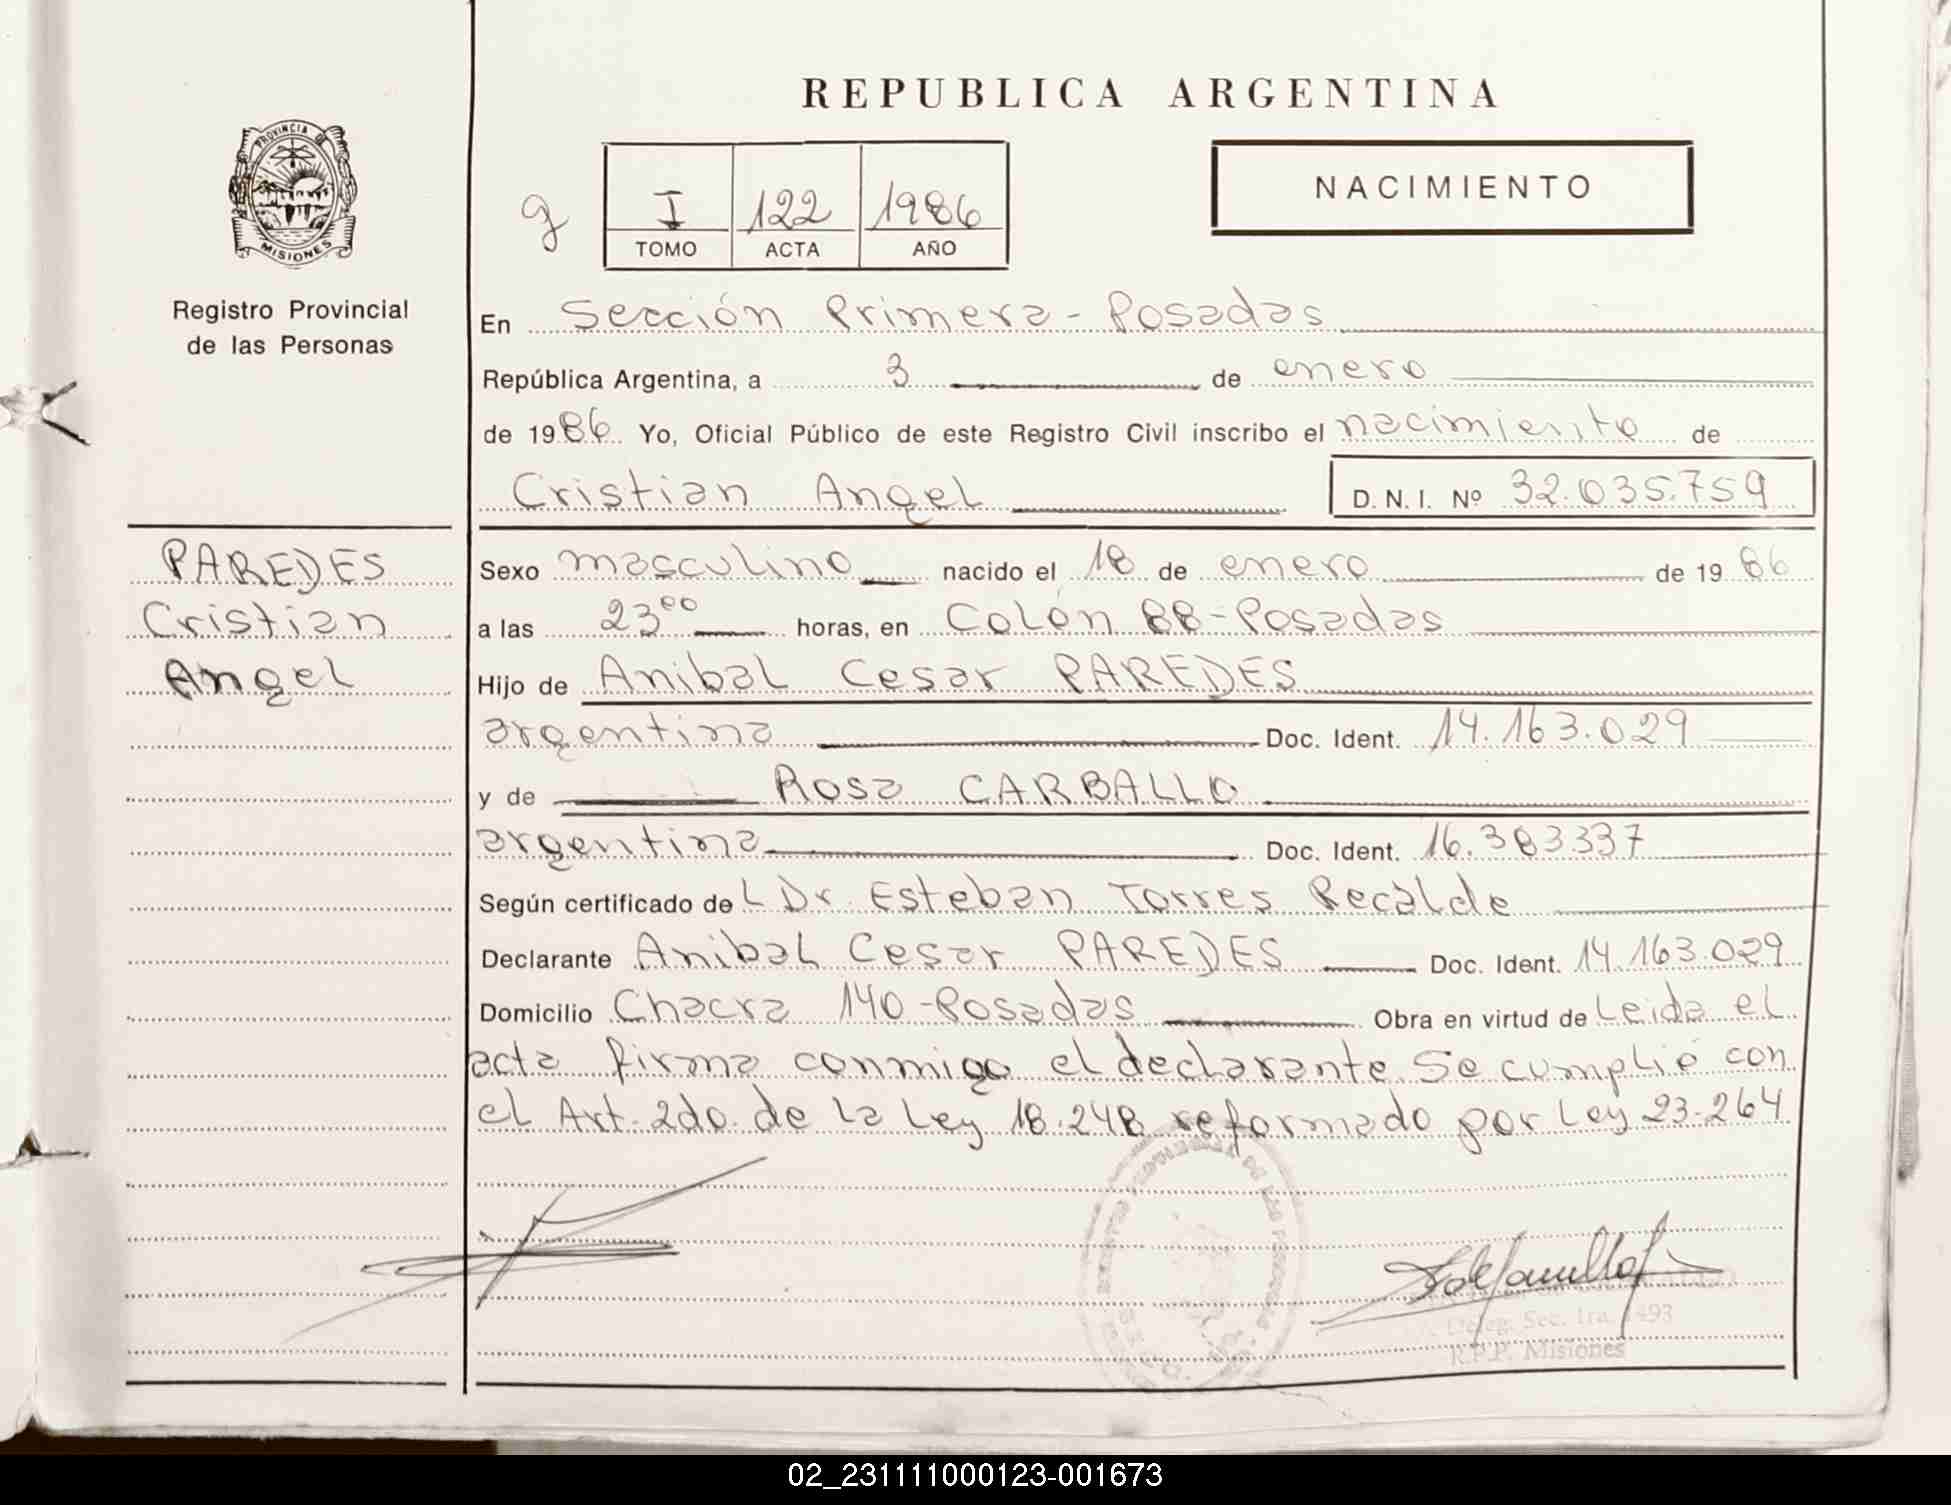 REPUBLICA ARGENTINA
PROVINCIA DE
MISIONES
Registro Provincial
de las Personas
g
I 122 1986
TOMO ACTA AÑO
NACIMIENTO
En Sección Primera - Posadas
República Argentina, a 3 de enero
de 1986 Yo, Oficial Público de este Registro Civil inscribo el nacimiento de
Cristian Angel D. N. I. Nº 32.035.759
PAREDES
Cristian
Angel
Sexo masculino nacido el 18 de enero de 1986
a las 23⁰⁰ horas, en Colón 88 - Posadas
Hijo de Anibal Cesar PAREDES
argentina Doc. Ident. 14.163.029
y de Rosa CARBALLO
argentina Doc. Ident. 16.383.337
Según certificado del Dr. Esteban Torres Recalde
Declarante Anibal Cesar PAREDES Doc. Ident. 14.163.029
Domicilio Chacra 140 - Posadas Obra en virtud de Leida el
acta firma conmigo el declarante. Se cumplió con
el Art. 2do. de la Ley 18.248 reformado por Ley 23.264
DE LAS PERSONAS
Deleg. Sec. 1ra. 1493
R.P.P. Misiones
02_231111000123-001673